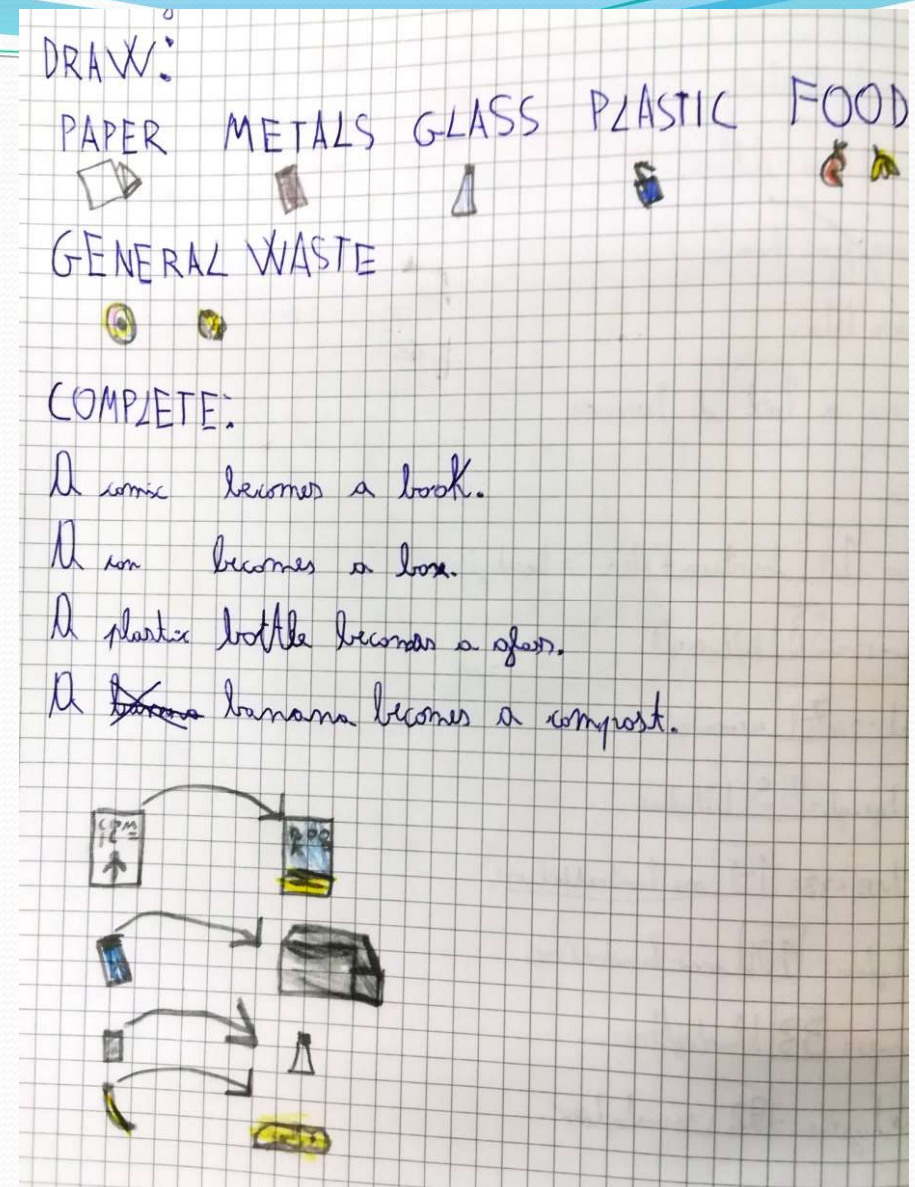 DRAW:
PAPER METALS GLASS PLASTIC FOOD
GENERAL WASTE
COMPLETE:
A comic becomes a book.
A con becomes a box.
A plastic bottle becomes a glass.
A banana becomes a compost.
COM
IC
BOO
K